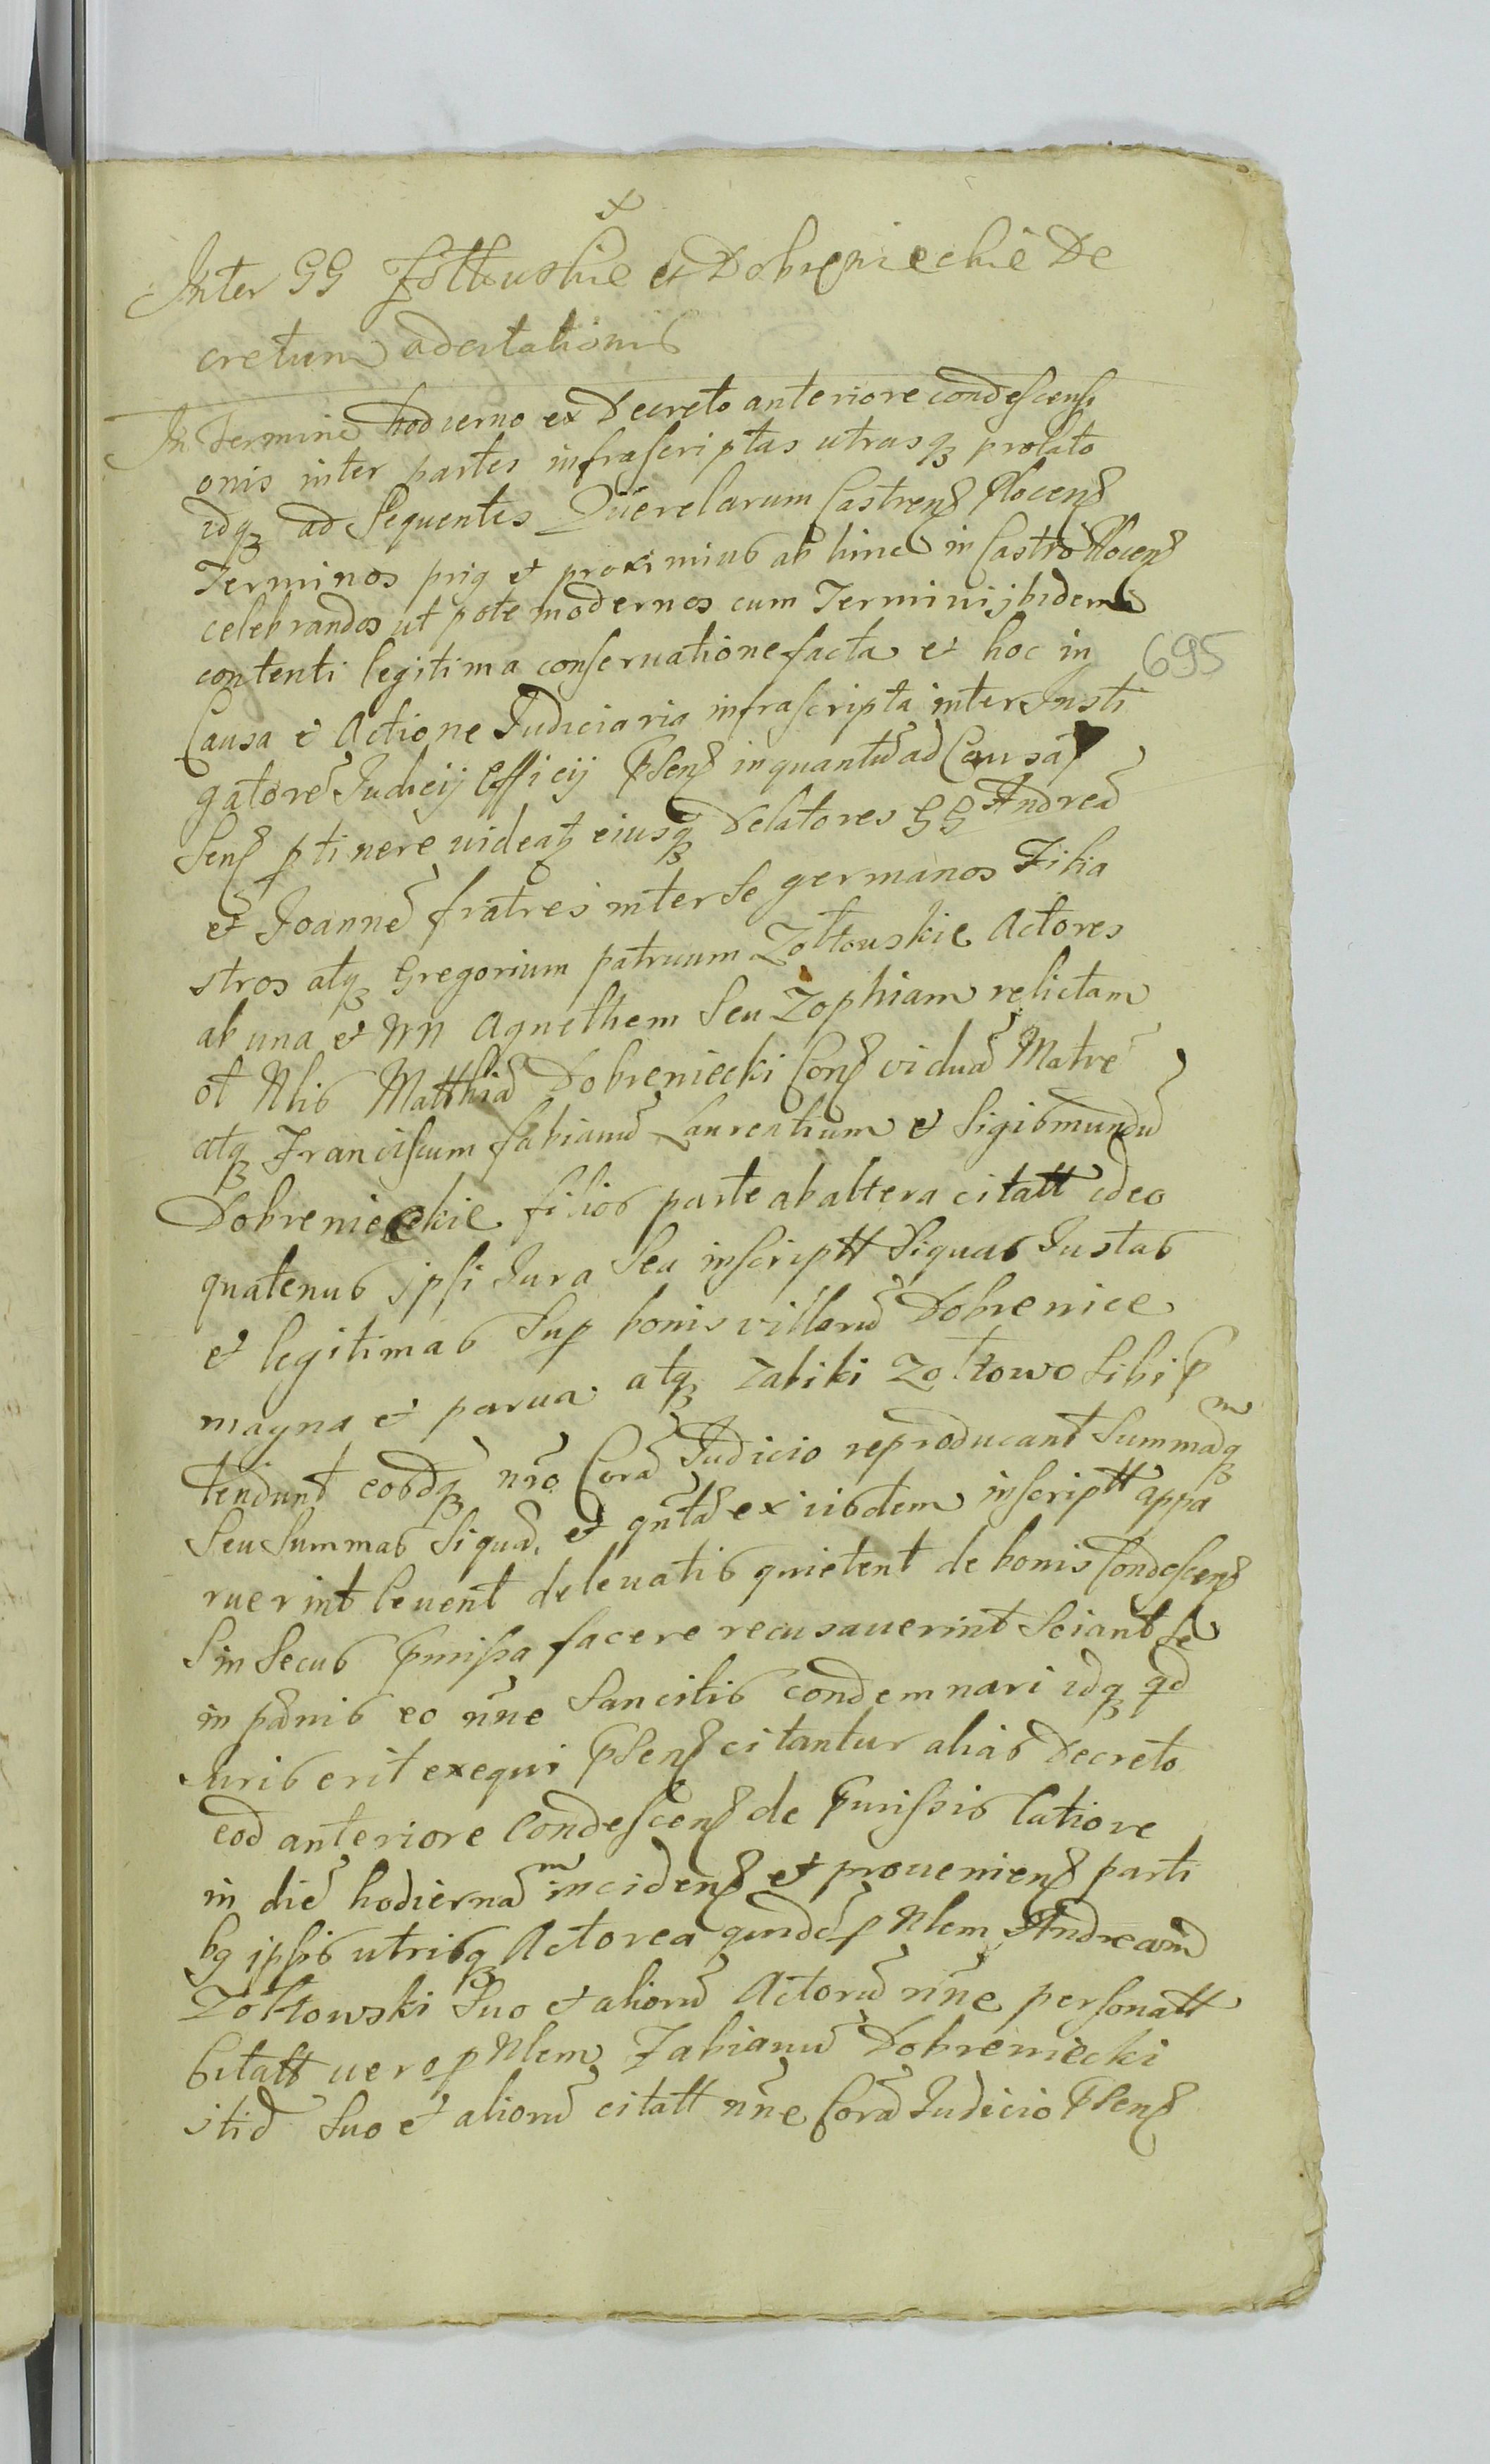 Inter GG Żołtouskie et Dobrenieckie De
cretum adcitationis
In Termino hodierno ex Decreto anteriore condescensi
onis inter partes infrascriptas utrasq prolato
idq ad sequentes Querelarum Castrens Plocens
Terminos prig et proximius ab hinc in Castro Plocens
celebrandos ut pote modernos cum Termini ibidem
contenti legitima conseruatione facta et hoc in
695
Causa et Actione Judiciaria infrascripta inter Insti
gatore Judicij Officij Psens inquantu ad Causa P
sens ptinere uideatz eiusq Delatores GG Andrea
et Joanne fratres inter se germanos Filia
stros atq Gregorium patruum Zołtouskie Actores
ab una et NN Agnethem seu Zophiam relictam
ol Nlis Matthia Dobreniecki Cons vidua Matre
atq Franciscum Fabianu Laurentium et Sigismundu
Dobrenieckie filios parte ab altera citatt ideo
quatenus ipsi Jura seu inscriptt siquas Justas
et legitimas sup bonis villaru Dobrenice
magna et parua atq Zabiki Zołtowo sibi p
tendunt eosdq nro Cora Judicio reproducant summamq
seu summas siqua et qnta ex iisdem inscriptt appa
ruerint leuent deleuatis quietent de bonis Condescens
sin secus pmissa facere recusauerint sciant se
in pænis eo nne sancitis condemnari idq qd
iuris erit exequi psens citantur alias Decreto
eod anteriore Condescens de pmissis latiore
in die hodierna incidens et proueniens parti
bg ipsis utrisq Actorea quide p Nlem Andream
Zołtowski suo et alioru Actoru nne personatt
Citatt uero p Nlem Fabianu Dobreniecki
itid suo et alioru citatt nne Cora Judicio psens